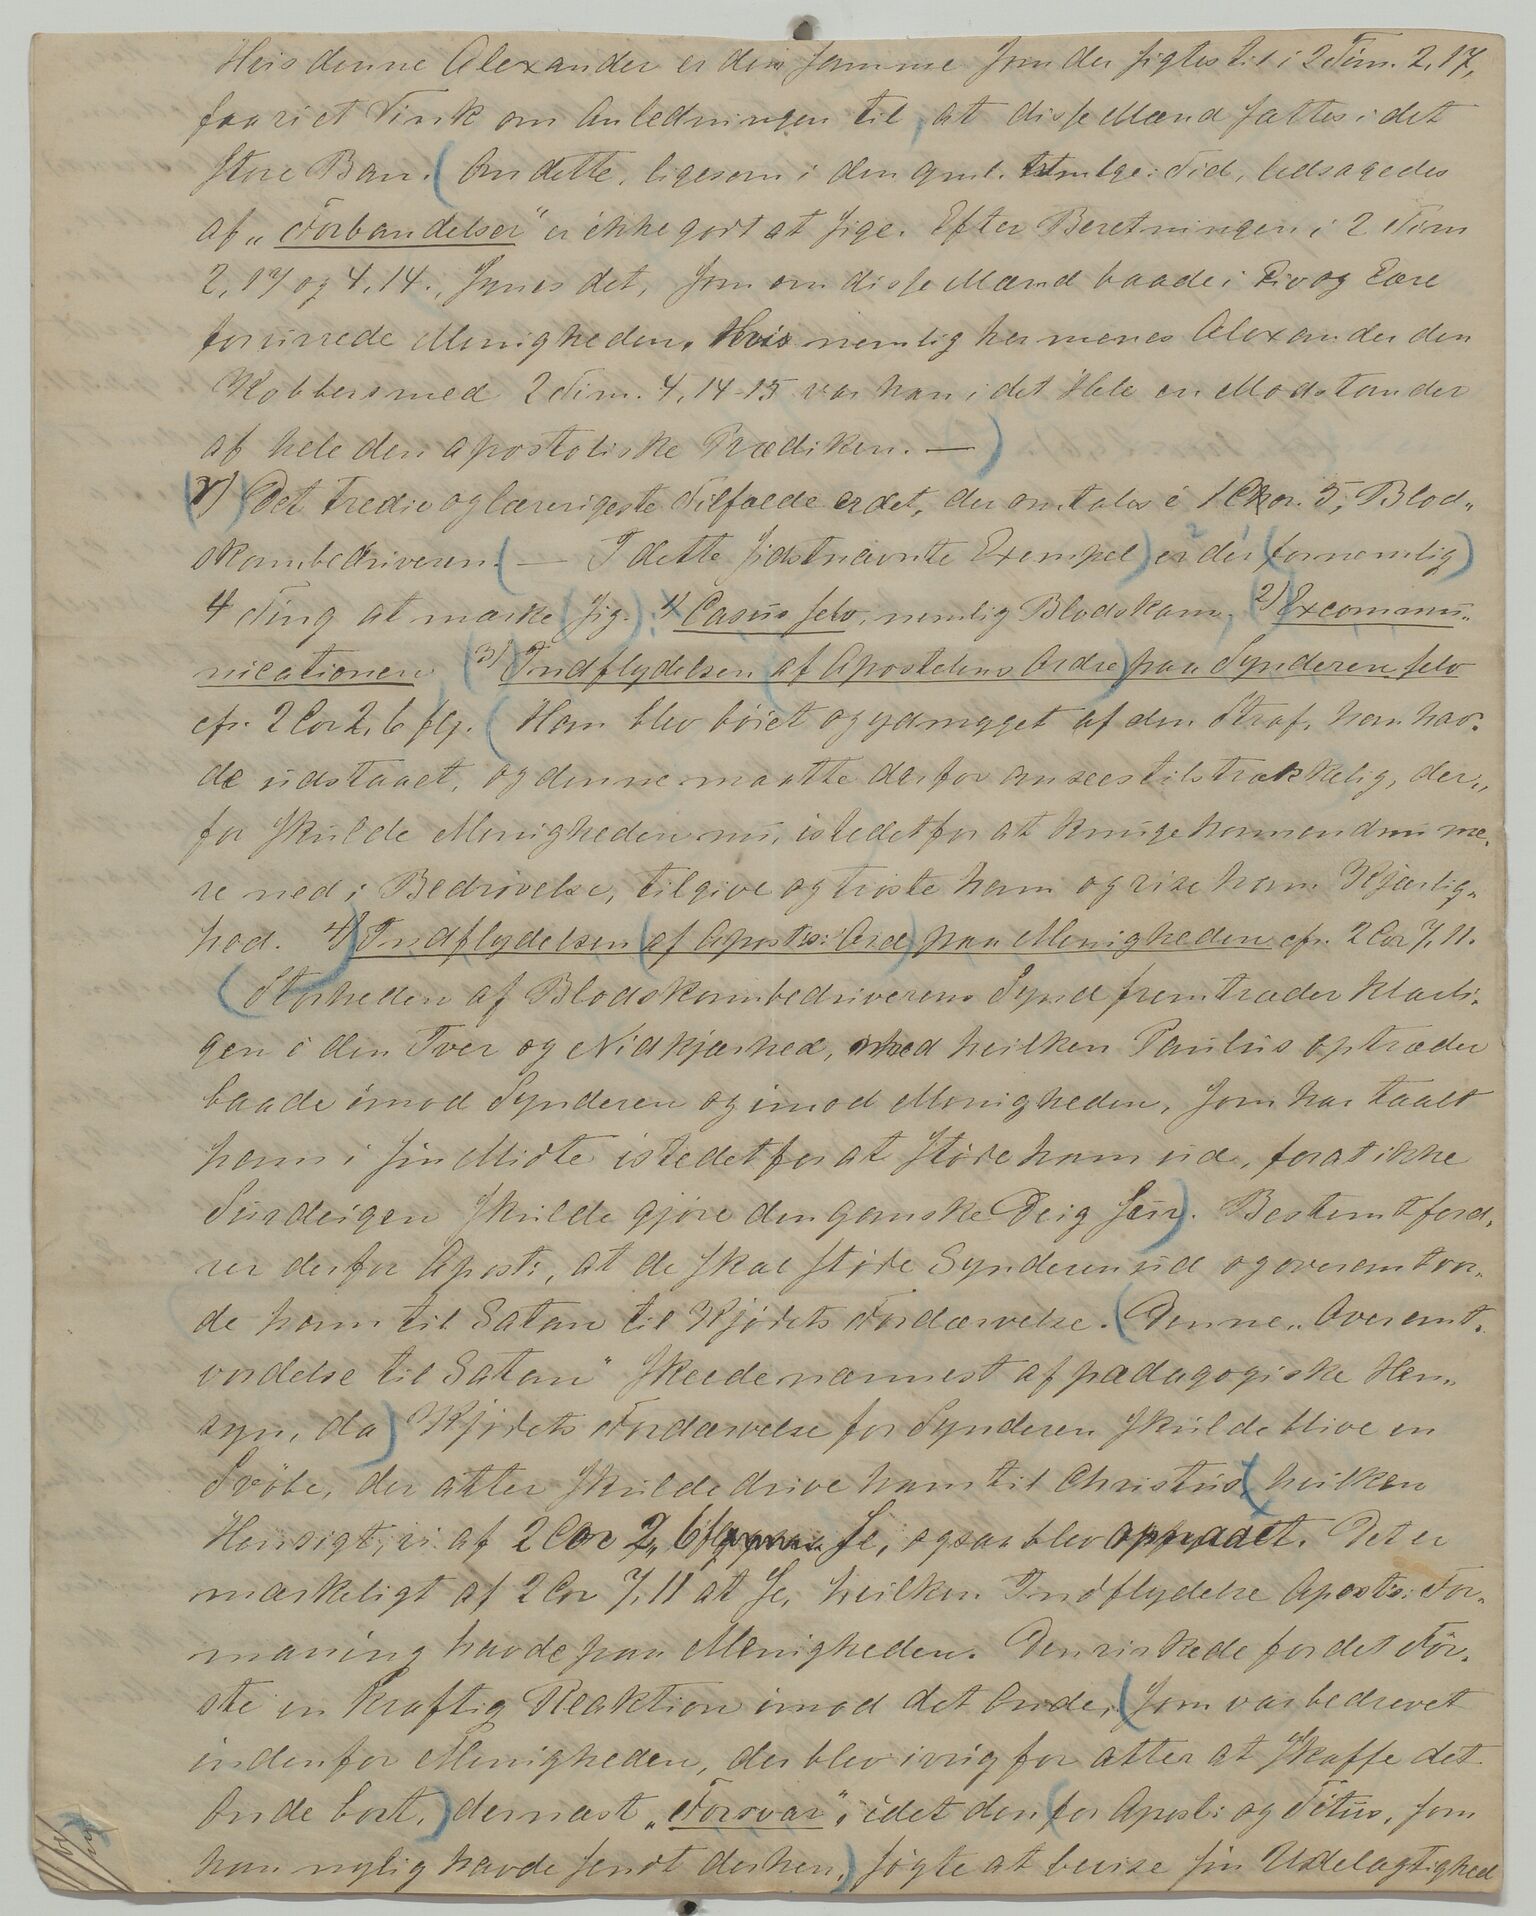 Hvis denne Alexander er den samme som der sigtes til i 2 Tim. 2, 17,
faar vi et Vink om Anledningen til, at disse Mænd sattes i det
store Ban. (Om dette, ligesom i den gml. tstmtlge: Tid, ledsagedes
af „Forbandelser" er ikke godt at sige. Efter Beretningen i 2 Tim
2, 17 og 4, 14., synes det, som om disse Mænd baade i Liv og Lære
forurrede Menigheden. Hvis nemlig her menes Alexander den
Kobbersmed 2 Tim. 4, 14-15 var han i det Hele en Modstander
af hele den apostoliske Prædiken. —)
(γ) Det tredie og lærerigeste Tilfælde er det, der omtales i 1 Chor. 5, Blod„
skambedriveren. (— I dette sidstnævnte Exempel) er der (fornemlig)
4 Ting at mærke (sig.) 1) Casus selv, nemlig Blodskam, 2) Excommu„
nicationen (3) Indflydelsen af Apostelens Ordre) paa Synderen selv
cfr. 2 Cor 2, 6 flg. (Han blev bøiet og ydmyget af den Straf, han hav„
de udstaaet, og denne maatte derfor ansees tilstrækkelig, der„
for skulde Menigheden nu, istedetfor at knuge ham endnu me„
re ned i Bedrøvelse, tilgive og trøste ham og vise ham Kjærlig„
hed. 4) Indflydelsen (af Aposts: Ord) paa Menigheden cfr. 2 Cor 7, 11.
(Storheden af Blodskambedriverens Synd fremtræder klarli„
gen i den Iver og Nidkjærhed, med hvilken Paulus optræder
baade imod Synderen og imod Menigheden, som har taalt
ham i sin Midte istedetfor at støde ham ud, forat ikke
Surdeigen skulde gjøre den ganske Deig suur). Bestemt ford„
rer derfor Apost:, at de skal støde Synderen ud og overantvor„
de ham til Satan til Kjødets Fordærvelse. (Denne „Overant„
vordelse til Satan" skeede nærmest af pædagogiske Hen„
syn, da) Kjødets Fordærvelse for Synderen skulde blive en
Svøbe, der atter skulde drive ham til Christus, (hvilken
Hensigt, vi af 2 Cor 2, 6 flg se, ogsaa blev opnaaet. Det er
mærkeligt af 2 Cor 7, 11 at se, hvilken Indflydelse Aposts: For„
maning havde paa Menigheden. Den virkede for det För„
ste en kraftig Reaktion imod det Onde, (som var bedrevet
indenfor Menigheden, der blev ivrig for atter at skaffe det
Onde bort,) dernæst „Forsvar", idet den (for Apost: og Titus, som
han nylig havde sendt derhen,) søgte at bevise sin Udelagtighed